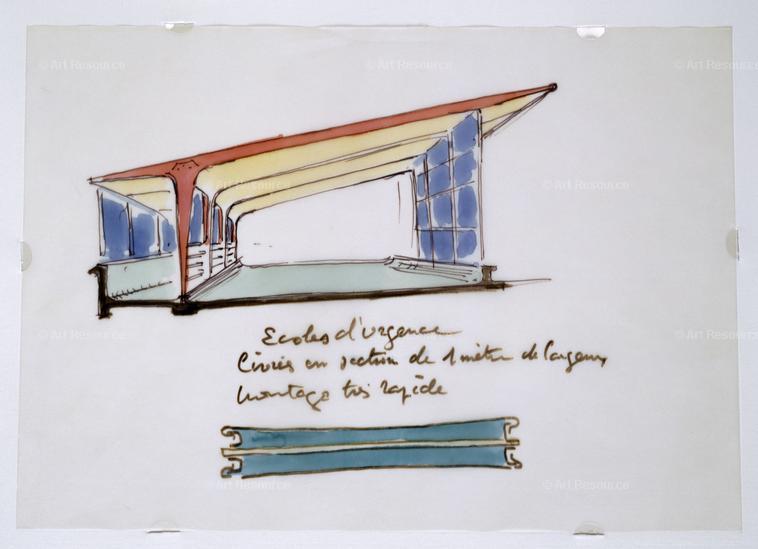 Ecoles d'urgence
Livrés en section de 1 mètre de largeur
montage très rapide
© Art Resource
© Art Resource
© Art Resource
© Art Resource
© Art Resource
© Art Resource
© Art Resource
© Art Resource
© Art Resource